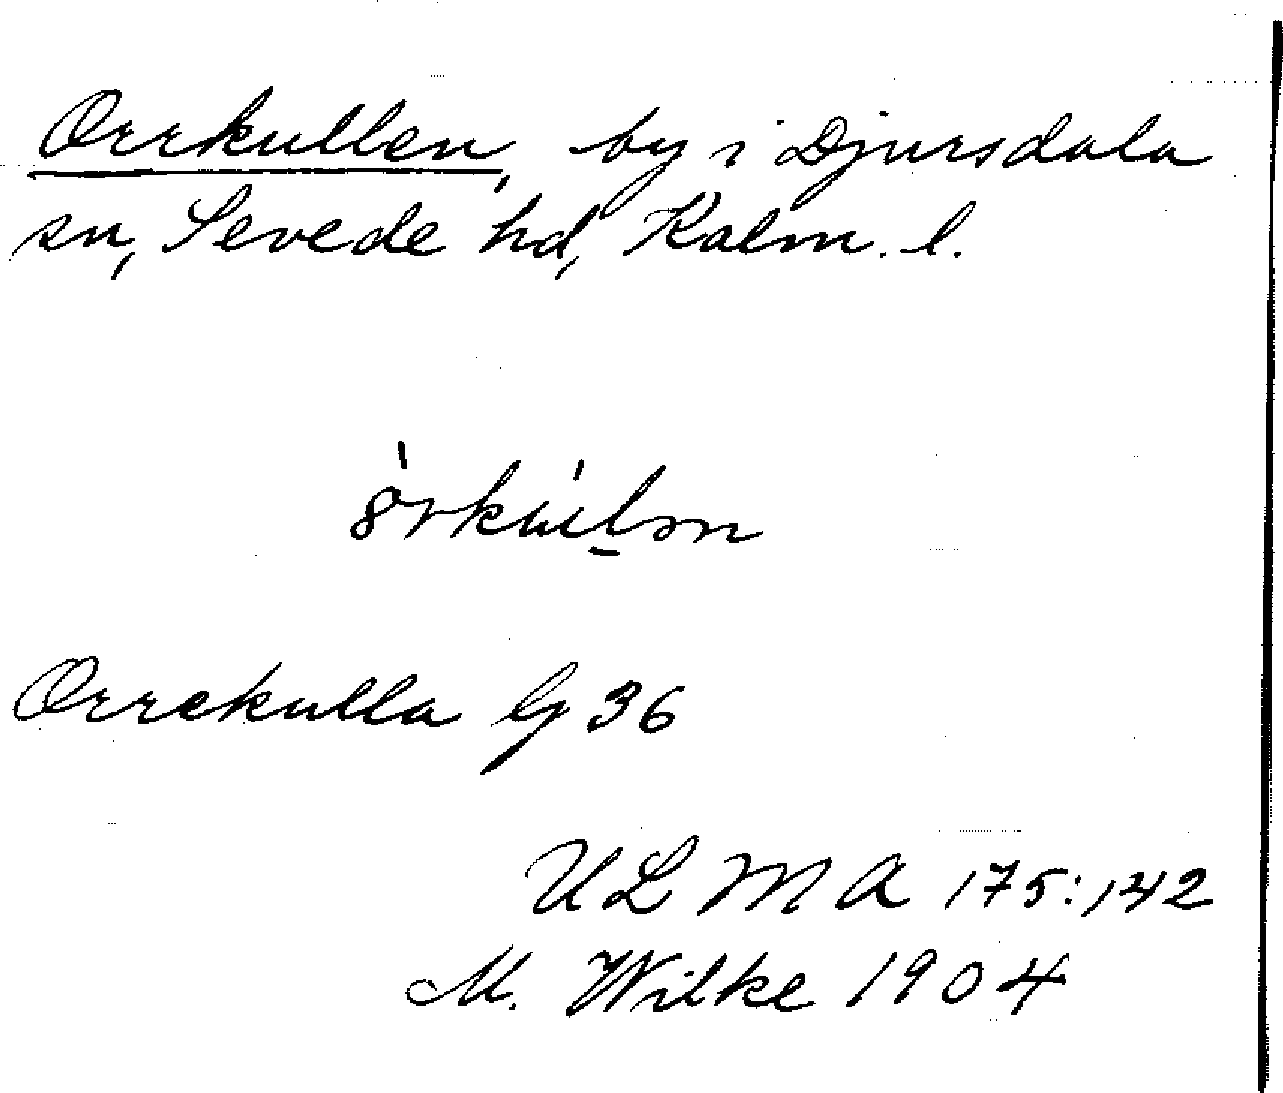 Orrkullen, by i Djursdala
sn, Sevede hd, Kalm. l.
Orrekulla G 36
ULMA 175:142
M. Wilke 1904